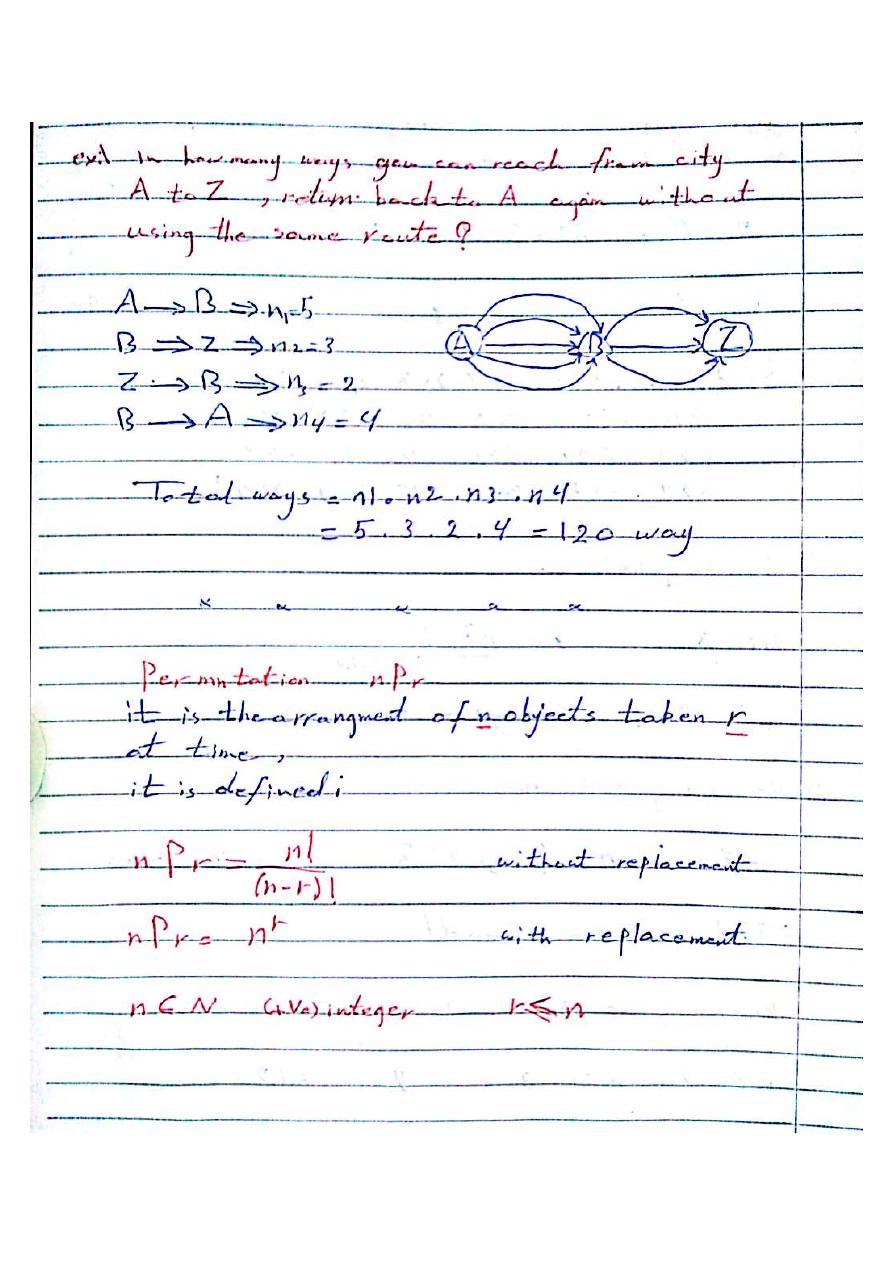 ex: In how many ways you can reach from city
A to Z , return back to A again without
using the same route ?
A → B ⇒ n1=5
B ⇒ Z ⇒ n2=3
Z → B ⇒ n3 = 2
B → A ⇒ n4 = 4
A B Z
Total ways = n1 . n2 . n3 . n4
= 5 . 3 . 2 . 4 = 120 way
Permutation nPr
it is the arrangment of n objects taken r
at time,
it is defined :
nPr = n! / (n-r)! without replacement
nPr = n^r with replacement
n ∈ N (+ve) integer r ≤ n